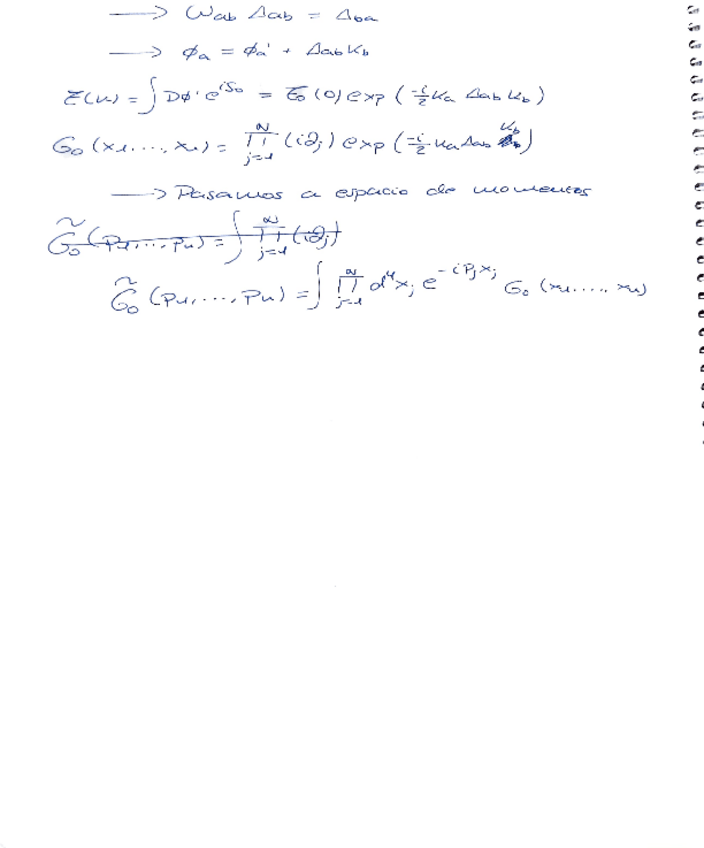 → Wab Δab = Δba
→ ϕa = ϕa' + Δab Kb
Z(K) = ∫ Dϕ' e^{iS₀} = Z₀(0) exp(-i/2 Ka Δab Kb)
G₀(x₁,...,xₙ) = ∏_{j=1}^{N} (i∂ⱼ) exp(-i/2 Ka Δab Kb)
→ Pasamos a espacio de momentos
G̃₀(p₁,...,pₙ) = ∫ ∏_{j=1}^{N} (i∂ⱼ)
G̃₀(p₁,...,pₙ) = ∫ ∏_{j=1}^{N} d⁴xⱼ e^{-ipⱼxⱼ} G₀(x₁,...,xₙ)